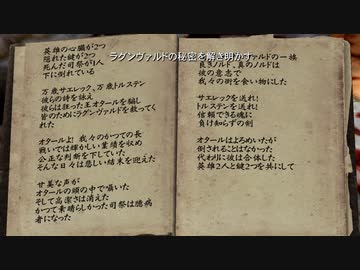 ラグンヴァルドの秘密を解き明かす
英雄の心臓が2つ
隠れた鍵が2つ
死んだ司祭が1人
下に倒れている
万歳サエレック、万歳トルステン
彼らの詩を詠え
彼らは狂った王オタールを騙し
皆のためにラグンヴァルドを救ってく
れた
オタールは 我々のかつての長
戦いでは輝かしい業績を収め
公正な判断を下していた
そんな日々は悲しい結末を迎えた
甘美な声が
オタールの頭の中で囁いた
そして高潔さは消えた
かつて素晴らしかった司祭は臆病
者になった
ヴァルドの一族
良きノルド、真のノルドは
彼の意志で
我々の街を食い物にした
サエレックを送れ!
トルステンを送れ!
信頼できる魂に
負け知らずの剣
オタールはよろめいたが
倒されることはなかった
代わりに彼は合体した
英雄2人と鍵2つを共にして